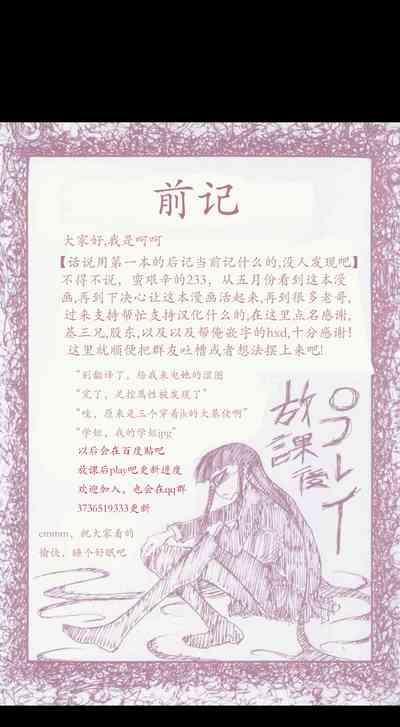 前记
大家好,我是呵呵
【话说用第一本的后记当前记什么的,没人发现吧】
不得不说，蛮艰辛的233，从五月份看到这本漫
画,再到下决心让这本漫画活起来,再到很多老哥,
过来支持帮忙支持汉化什么的,在这里点名感谢,
基三兄,股东,以及以及帮俺嵌字的hxd,十分感谢！
这里就顺便把群友吐槽或者想法摆上来吧!
“别翻译了，给我来电她的涩图
“完了，足控属性被发现了”
“哇，原来是三个穿着jk的大基佬啊”
“学姐，我的学姐jpg”
以后会在百度贴吧
放课后play吧更新进度
欢迎加入，也会在qq群
3736519333更新
emmm，祝大家看的
愉快，睡个好眠吧
放課後
プレイ